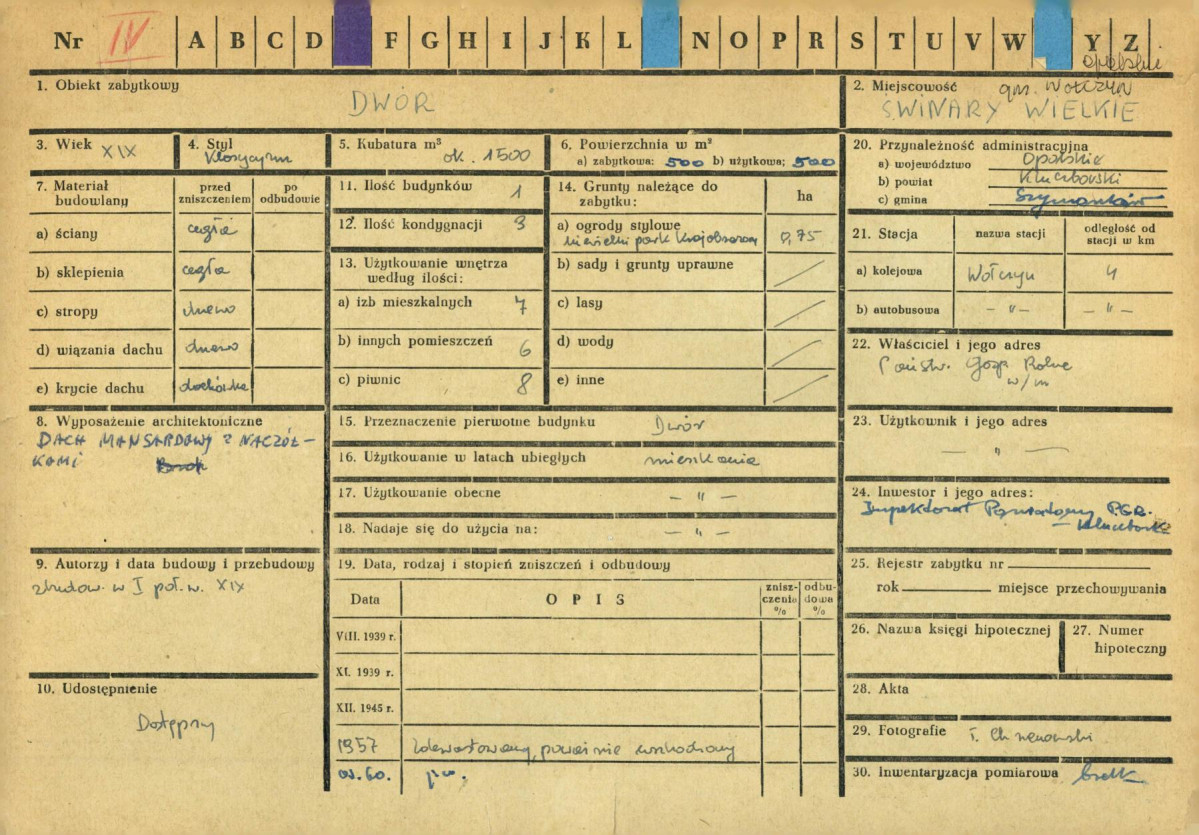 Nr IV A B C D F G H I J K L N O P R S T U V W Y Z
opolskie
1. Obiekt zabytkowy
DWÓR
2. Miejscowość gm. WOŁCZYN
ŚWINIARY WIELKIE
3. Wiek XIX
4. Styl
Klasycyzm
5. Kubatura m³
ok. 1500
6. Powierzchnia w m²
a) zabytkowa: 500 b) użytkowa: 500
20. Przynależność administracyjna
a) województwo Opolskie
b) powiat Kluczborski
c) gmina Szymonków
7. Materiał budowlany
przed zniszczeniem
po odbudowie
a) ściany cegła
b) sklepienia cegła
c) stropy drewno
d) wiązania dachu drewno
e) krycie dachu dachówka
11. Ilość budynków 1
12. Ilość kondygnacji 3
13. Użytkowanie wnętrza
według ilości:
a) izb mieszkalnych 7
b) innych pomieszczeń 6
c) piwnic 8
14. Grunty należące do
zabytku:
ha
a) ogrody stylowe
niewielki park krajobrazowy 0,75
b) sady i grunty uprawne
c) lasy
d) wody
e) inne
21. Stacja
nazwa stacji
odległość od
stacji w km
a) kolejowa Wołczyn 4
b) autobusowa – " – – " –
22. Właściciel i jego adres
Państw. Gosp. Rolne
w/m
8. Wyposażenie architektoniczne
DACH MANSARDOWY Z NACZÓŁ-
KAMI
15. Przeznaczenie pierwotne budynku Dwór
16. Użytkowanie w latach ubiegłych mieszkania
17. Użytkowanie obecne – " –
18. Nadaje się do użycia na: – " –
23. Użytkownik i jego adres
– " –
24. Inwestor i jego adres:
Inspektorat Powiatowy PGR.
– Kluczbork
9. Autorzy i data budowy i przebudowy
zbudow. w I poł. w. XIX
19. Data, rodzaj i stopień zniszczeń i odbudowy
Data
OPIS
znisz-
czenia
%
odbu-
dowa
%
VIII. 1939 r.
XI. 1939 r.
XII. 1945 r.
1957 zdewastowany, poważnie uszkodzony
j.w.
25. Rejestr zabytku nr
rok miejsce przechowywania
26. Nazwa księgi hipotecznej
27. Numer
hipoteczny
10. Udostępnienie
Dostępny
28. Akta
29. Fotografie
30. Inwentaryzacja pomiarowa brak